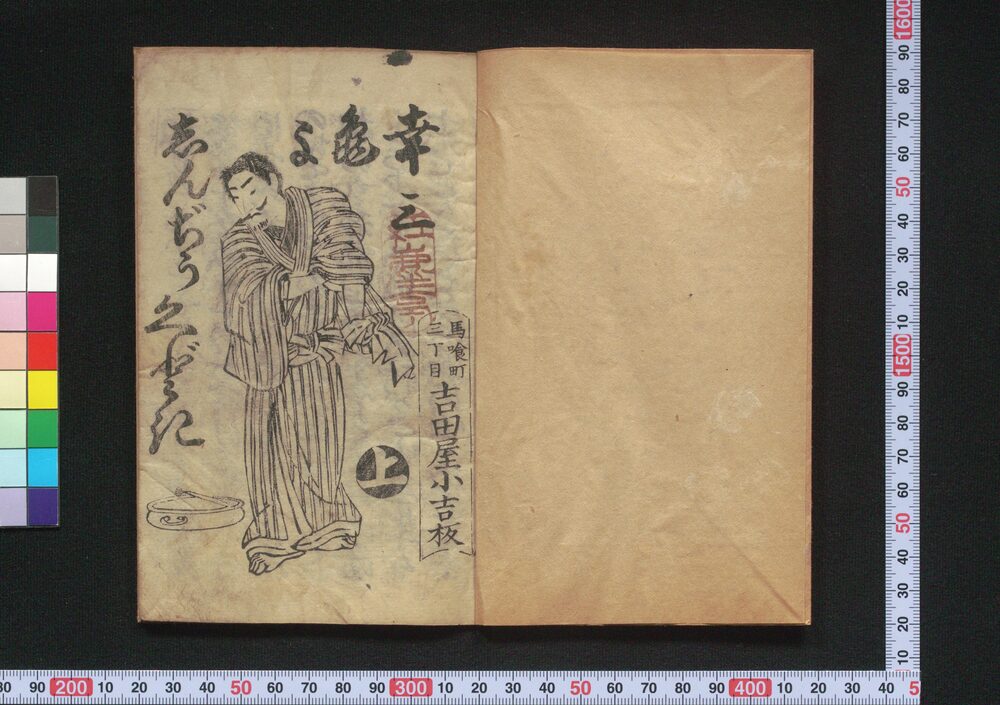 幸三
亀
よ
しんぢう
くどき
上
馬喰町
三丁目
吉田屋小吉板
1600 90 80 70 60 50 40 30 20 10 1500 90 80 70 60 50 40 30 20 10
80 90 200 10 20 30 40 50 60 70 80 90 300 10 20 30 40 50 60 70 80 90 400 10 20 30 40 5